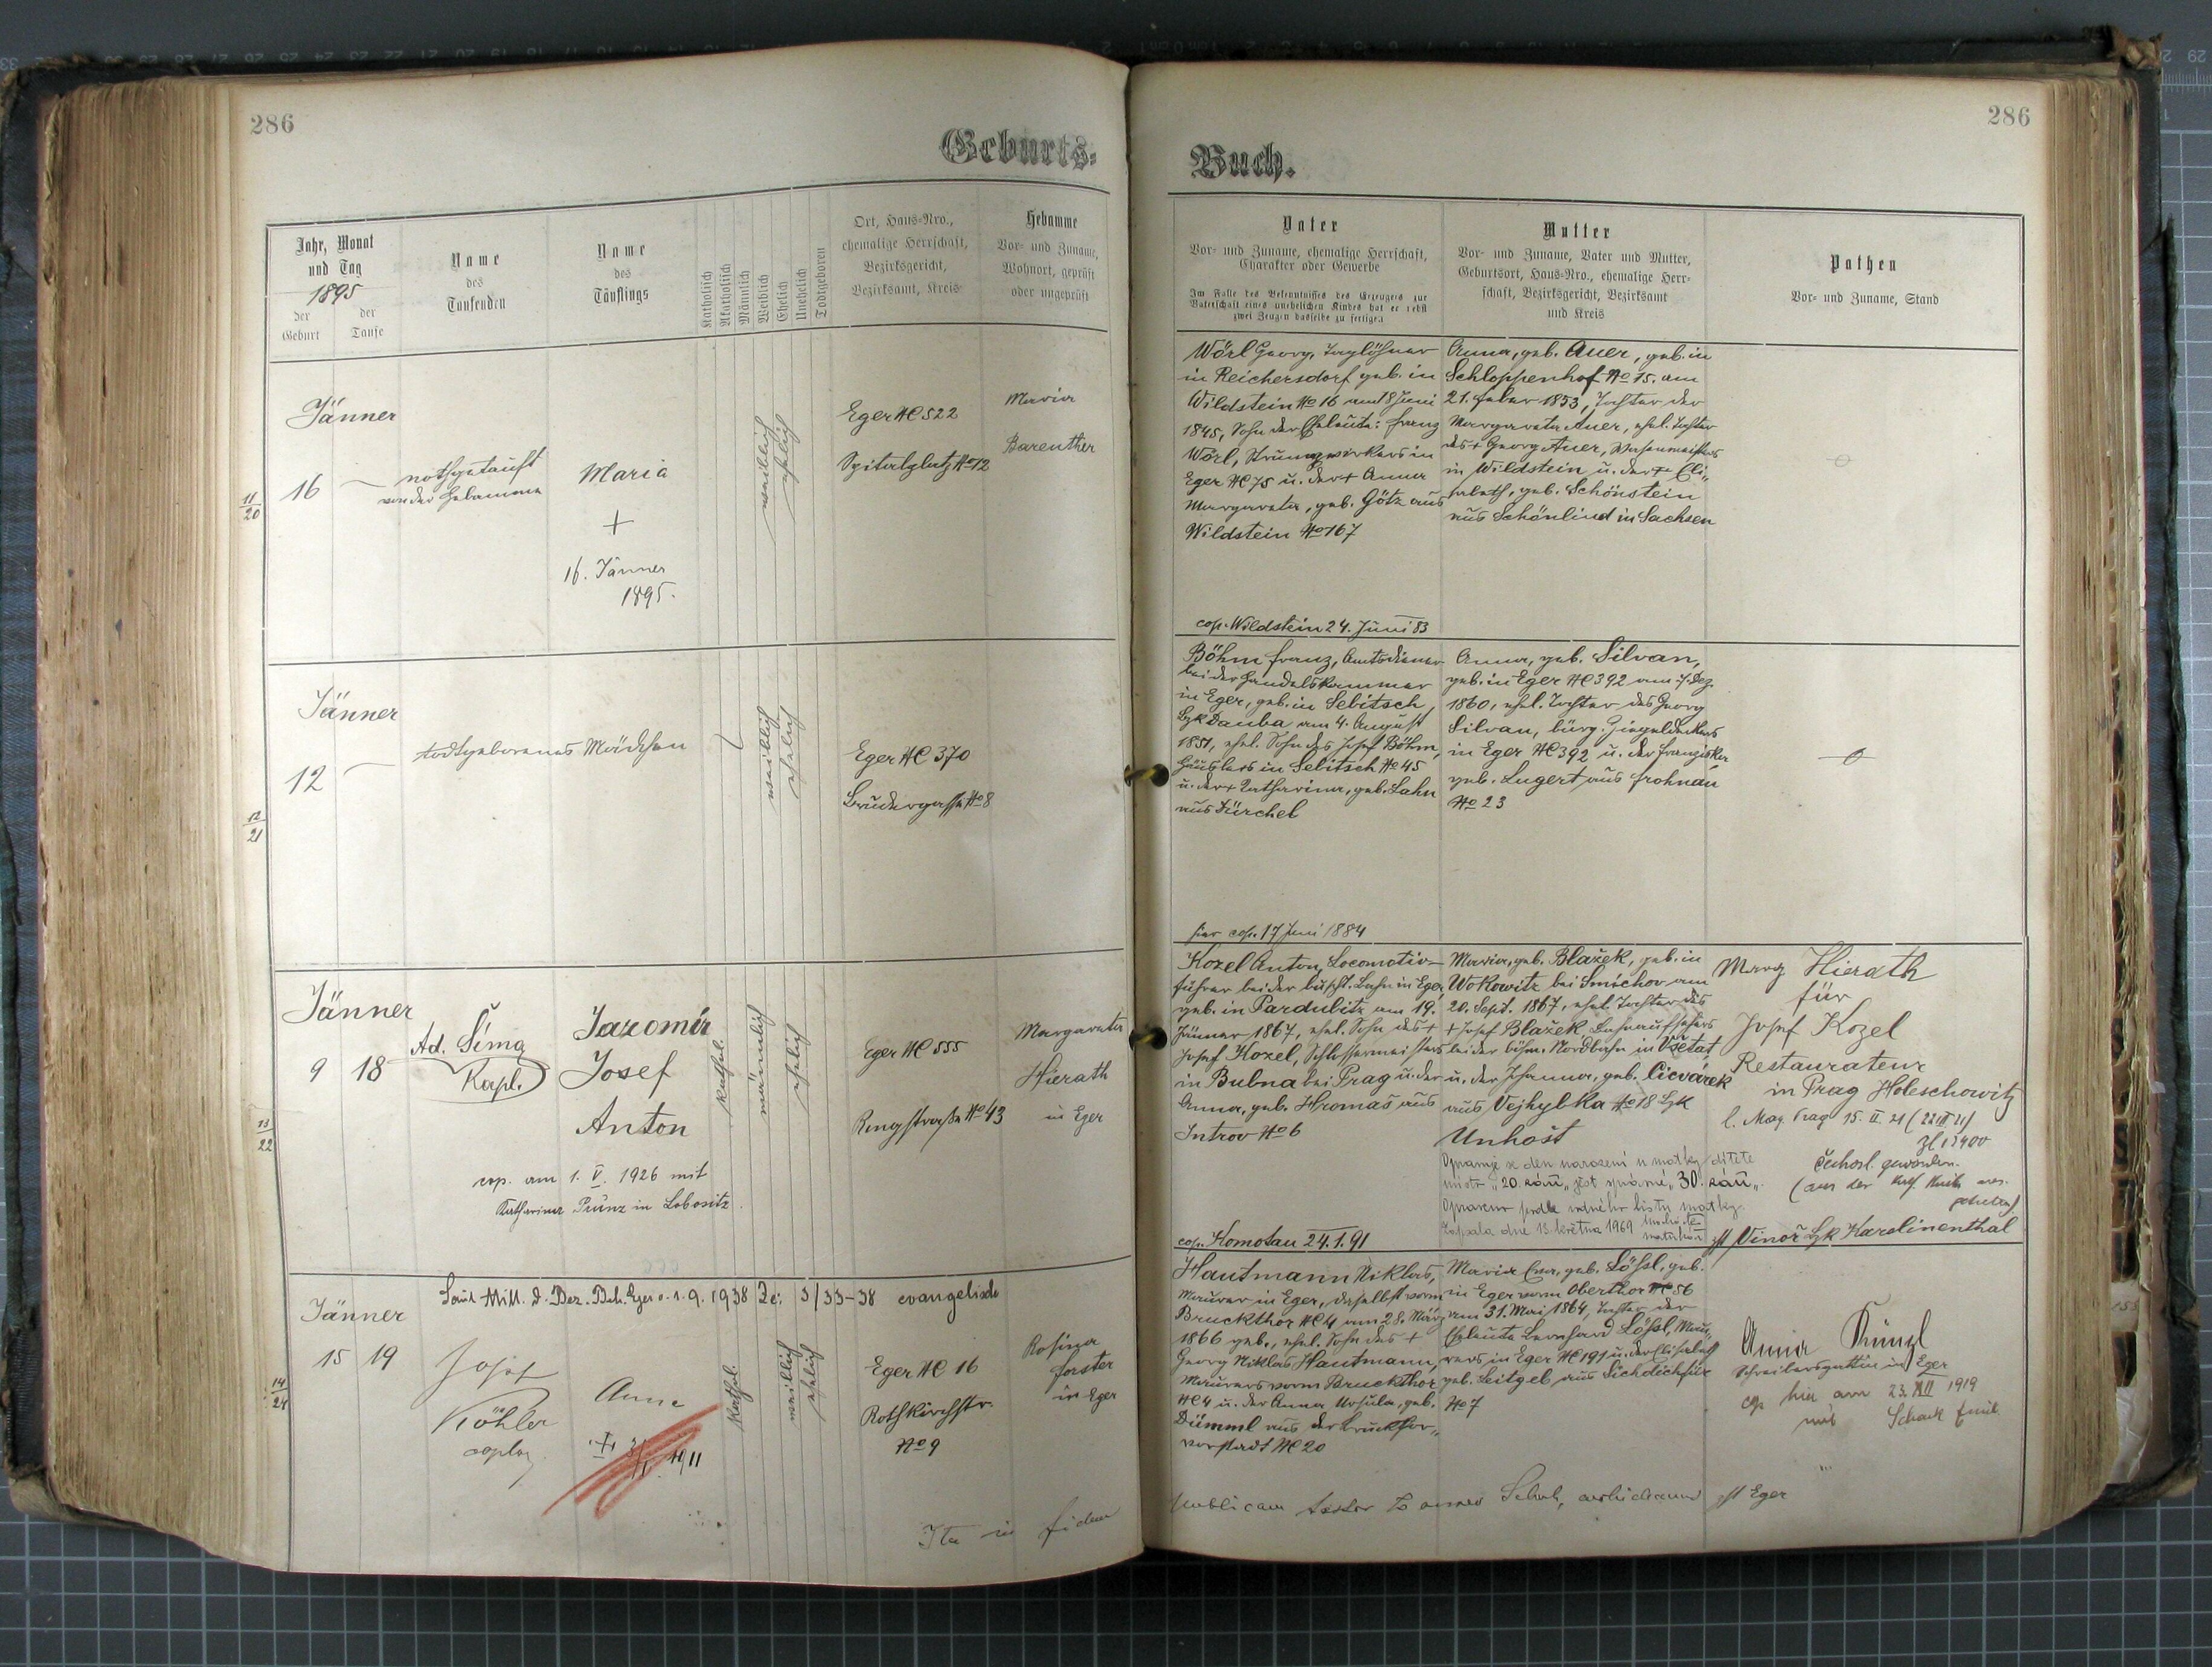 286
286
Geburts-
Buch.
Jahr, Monat
und Tag
1895
der
Geburt
der
Taufe
Name
des
Taufenden
Name
des
Täuflings
Katholisch
Akatholisch
Männlich
Weiblich
Ehelich
Unehelich
Todtgeboren
Ort, Haus-Nro.,
ehemalige Herrschaft,
Bezirksgericht,
Bezirksamt, Kreis
Hebamme
Vor- und Zuname,
Wohnort, geprüft
oder ungeprüft
Vater
Vor- und Zuname, ehemalige Herrschaft,
Charakter oder Gewerbe
Im Falle des Bekenntnisses des Erzeugers zur
Vaterschaft eines unehelichen Kindes hat er nebst
zwei Zeugen dasselbe zu fertigen
Mutter
Vor- und Zuname, Vater und Mutter,
Geburtsort, Haus-Nro., ehemalige Herr-
schaft, Bezirksgericht, Bezirksamt
und Kreis
Pathen
Vor- und Zuname, Stand
11/20
Jänner
16
nothgetauft
von der Hebamme
Maria
+
16. Jänner
1895.
weiblich
ehelich
Eger NC 522
Spitalplatz No 12
Maria
Barenther
Wörl Georg, Taglöhner
in Reichersdorf geb. in
Wildstein No 16 am 18 Juni
1845, Sohn der Eheleute: Franz
Wörl, Strumpfwirkers in
Eger NC 75 u. der + Anna
Margareta, geb. Götz aus
Wildstein No 167
cop. Wildstein 24. Juni 83
Anna, geb. Auer, geb. in
Schloppenhof No 15. am
21. Feber 1853, Tochter der
Margareta Auer, ehel. Tochter
des + Georg Auer, Wasenmeisters
in Wildstein u. der + Eli-
sabeth, geb. Schönstein
aus Schönlind in Sachsen
12/21
Jänner
12
todtgeborenes Mädchen
weiblich
ehelich
Eger NC 370
Brudergasse No 8
Böhm Franz, Amtsdiener
bei der Handelskammer
in Eger, geb. in Sebitsch,
Bzk Dauba am 4. August
1851, ehel. Sohn des Josef Böhm,
Häuslers in Sebitsch No 45
u. der + Katharina, geb. Lahn
aus Zürchel
hier cop. 17 Juni 1884
Anna, geb. Silvan,
geb. in Eger NC 392 am 7. Dez.
1860, ehel. Tochter des Georg
Silvan, bürg. Ziegeldeckers
in Eger NC 392 u. der Franziska
geb. Lugert aus Frohnau
No 23
13/22
Jänner
9 18
Ad. Šíma
Kapl.
Jaromír
Josef
Anton
cop. am 1. V. 1926 mit
Katharina Prinz in Lobositz.
kathol.
männlich
ehelich
Eger NC 555
Ringstraße No 43
Margareta
Hierath
in Eger
Kozel Anton, Locomotiv-
führer bei der buscht. Bahn in Eger,
geb. in Pardubitz am 19.
Jänner 1867, ehel. Sohn des +
Josef Kozel, Schlossermeisters
in Bubna bei Prag u. der
Anna, geb. Hromas aus
Introv No 6
cop. Komotau 24.1.91
Maria, geb. Blažek, geb. in
Wokowitz bei Smíchov am
20. Sept. 1867, ehel. Tochter des
+ Josef Blažek Bahnaufsehers
bei der böhm. Nordbahn in Všetat
u. der Johanna, geb. Cicvárek
aus Vejhybka No 18 Bzk
Unhošt
Opravuje se den narození u matky dítěte
místo „20. září“ jest správně „30. září“.
Opraveno podle rodného listu matky.
Zapsala dne 13. května 1969
matrikář
Marg Hierath
für
Josef Kozel
Restaurateur
in Prag Holeschowitz
l. Mag. Prag 15. II. 21 (22 II 21)
Zl 15400
čechosl. geworden.
(aus der kath. Kirche aus-
getreten)
jst Vinoř Bzk Karolinenthal
14/24
Laut Mitt. d. Bez. Beh. Eger v. 1. 9. 1938 Zl. 3/33-38 evangelisch
Jänner
15 19
Josef
Köhler
coplog.
Anna
1911
kathol.
weiblich
ehelich
Eger NC 16
Rothkirchstr.
No 9
Rosina
Forster
in Eger
Hautmann Niklas,
Maurer in Eger, daselbst vorm
Bruckthor NC 4 am 28. März
1866 geb., ehel. Sohn des +
Georg Niklas Hautmann,
Maurers vorm Bruckthor
NC 4 u. der Anna Ursula, geb.
Dümml aus der Bruckthor-
vorstadt NC 20
Maria Eva, geb. Lößl, geb.
in Eger vorm Oberthor NC 56
am 31. Mai 1864, Tochter der
Eheleute Bernhard Lößl, Mau-
rers in Eger NC 191 u. der Elisabeth
geb. Leitgeb aus Sichdichfür
No 7
Anna Künzl
Schreibersgattin in Eger
cop hier am 23. XII 1919
mit Schack Emil
jst Eger
Ita in fidem